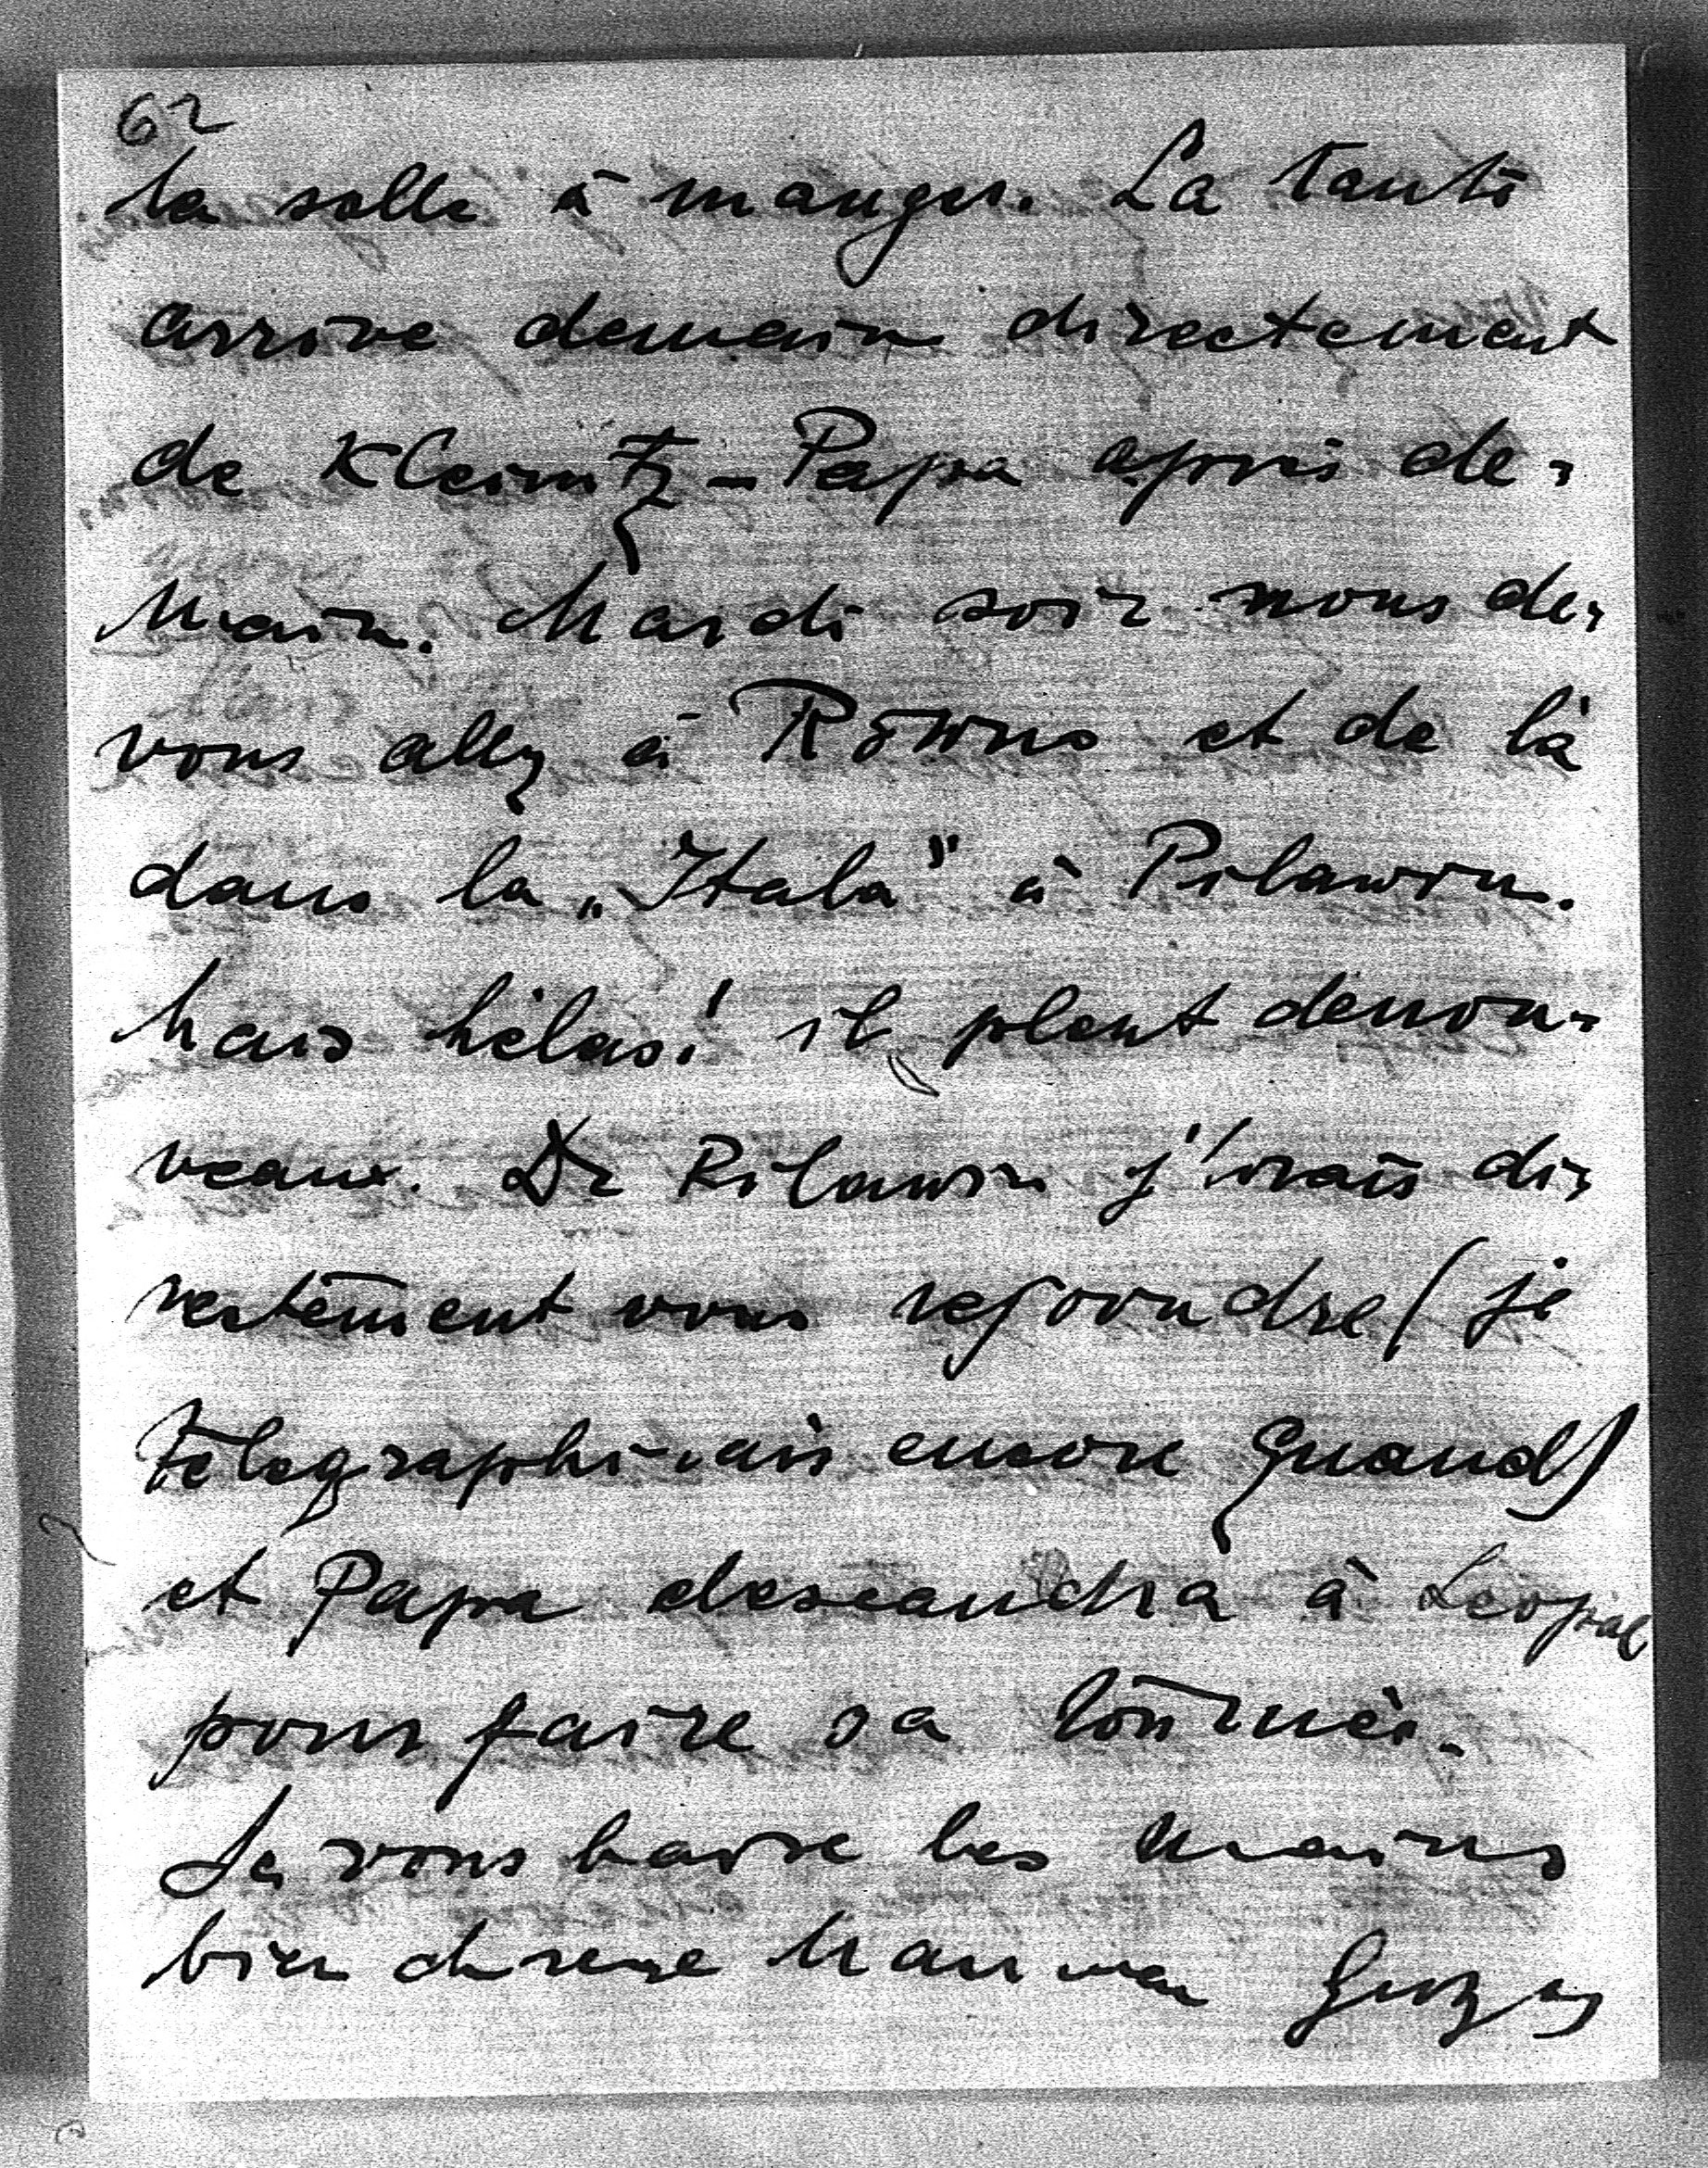 62
la salle à manger. La tante
arrive demain directement
de Kleinitz – Papa après de-
main. Mardi soir nous de-
vons allez à Równo et de là
dans la „Itala" à Pilawin.
Mais hélas! il pleut denou-
veaux. De Pilawin j'irais di-
rectement vous rejoindre (je
télégraphierais encore quand)
et Papa descandra à Léopol
pour faire sa tournée.
Je vous baise les mains
bien chere Maman